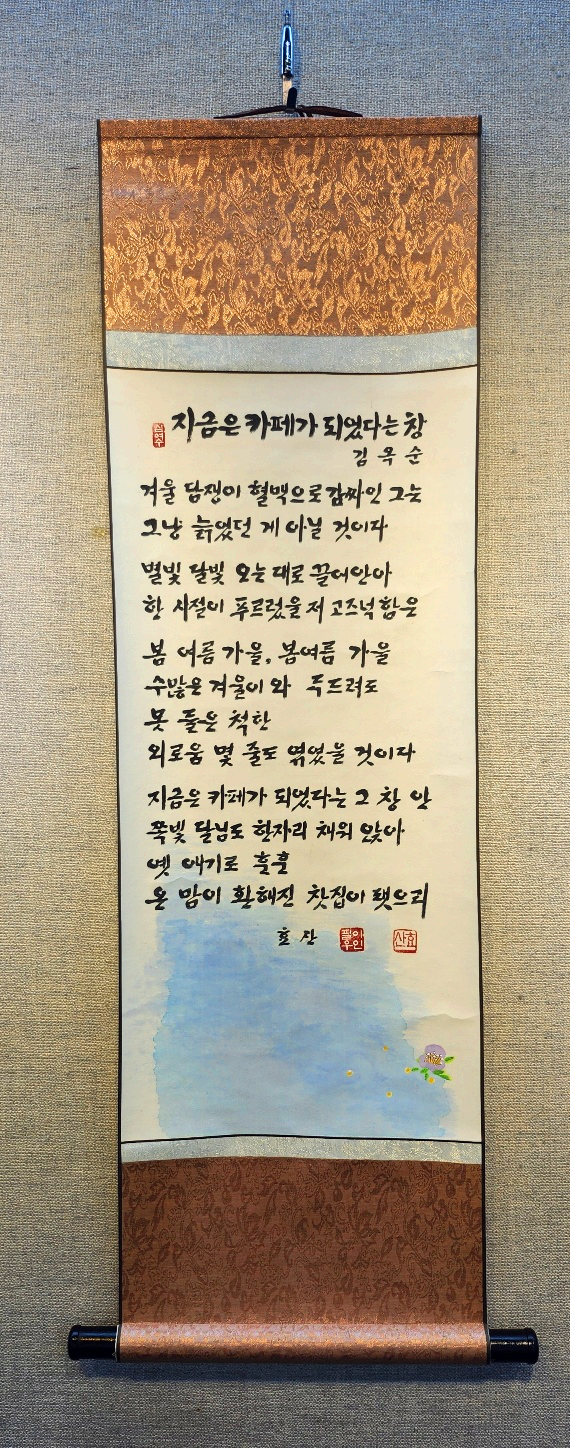 지금은 카페가 되었다는 창
김 옥 순
겨울 담쟁이 혈맥으로 감싸인 그는
그냥 늙었던 게 아닐 것이다
별빛 달빛 오는 대로 끌어안아
한 시절이 푸르렀을 저 고즈넉함은
봄 여름 가을, 봄 여름 가을
수많은 겨울이 와 두드려도
못 들은 척한
외로움 몇 줄도 엮였을 것이다
지금은 카페가 되었다는 그 창 안
쪽빛 달님도 한자리 채워 앉아
옛 얘기로 훈훈
온 맘이 환해진 찻집이 됐으리
효 산